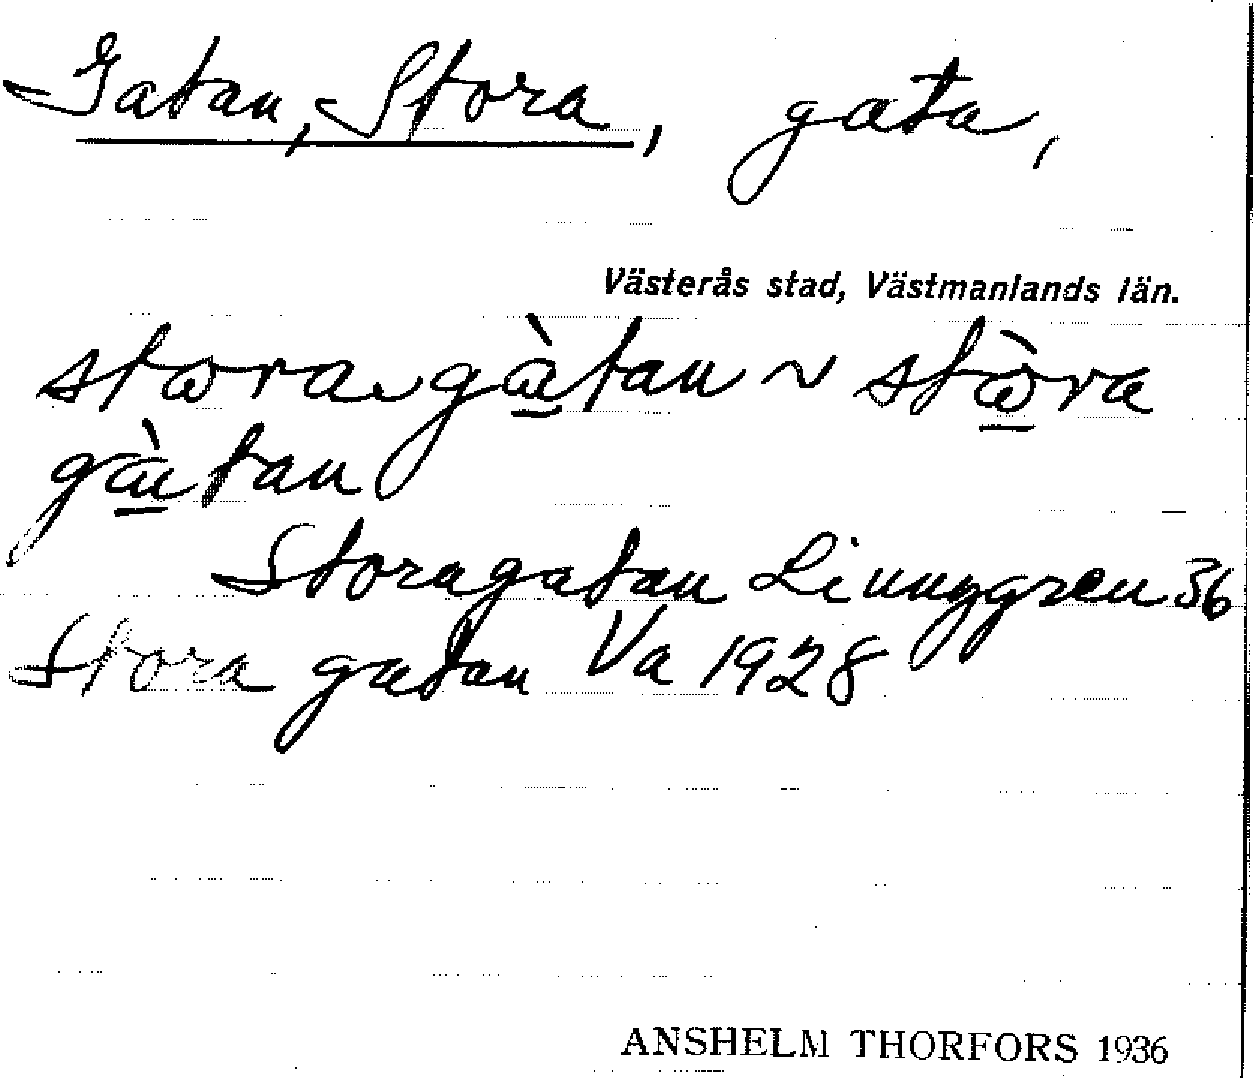 Gatan, Stora, gata,
Västerås stad, Västmanlands län.
stωra gὰtan ~ stὼra
gὰtan
Storagatan Linnggren 36
Stora gatan Va 1928
ANSHELM THORFORS 1936